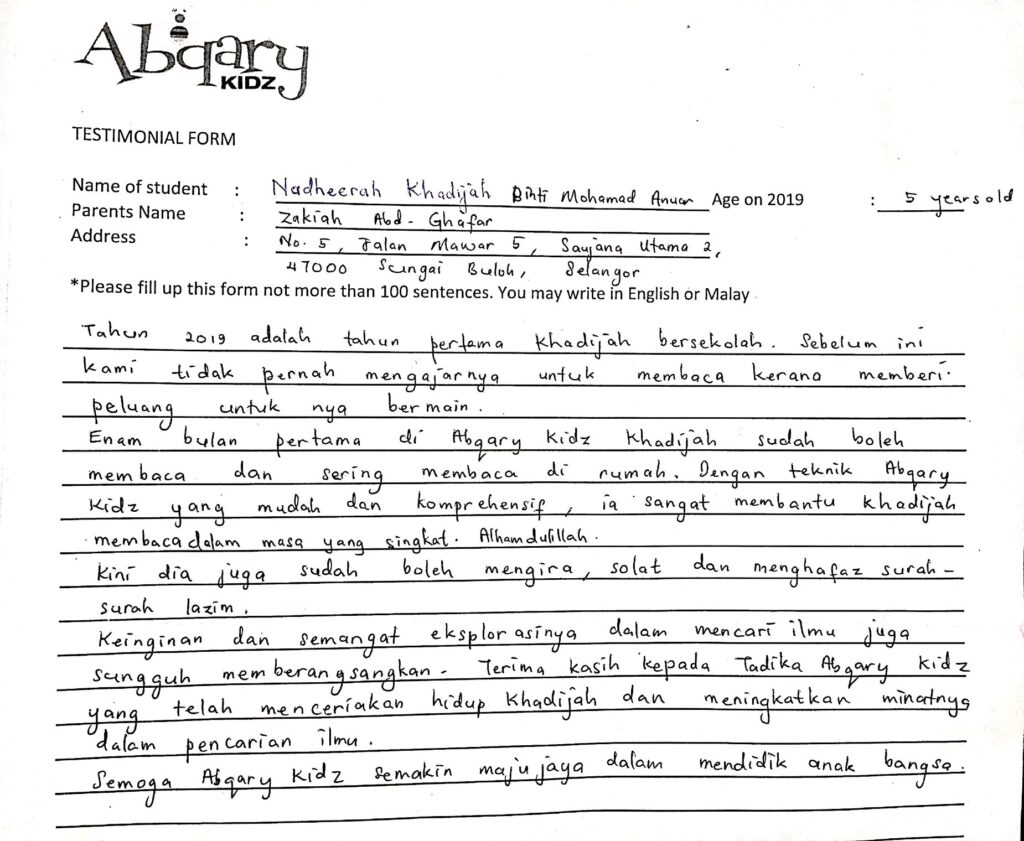 Abqary
KIDZ
TESTIMONIAL FORM
Name of student : Nadheerah Khadijah Binti Mohamad Anuar Age on 2019 : 5 years old
Parents Name : Zakiah Abd - Ghafar
Address : No. 5, Jalan Mawar 5, Saujana Utama 2,
47000 Sungai Buloh, Selangor
*Please fill up this form not more than 100 sentences. You may write in English or Malay
Tahun 2019 adalah tahun pertama Khadijah bersekolah. Sebelum ini
kami tidak pernah mengajarnya untuk membaca kerana memberi
peluang untuk nya bermain.
Enam bulan pertama di Abqary Kidz Khadijah sudah boleh
membaca dan sering membaca di rumah. Dengan teknik Abqary
Kidz yang mudah dan komprehensif, ia sangat membantu Khadijah
membaca dalam masa yang singkat. Alhamdulillah.
Kini dia juga sudah boleh mengira, solat dan menghafaz surah-
surah lazim.
Keinginan dan semangat eksplorasinya dalam mencari ilmu juga
sungguh memberangsangkan. Terima kasih kepada Tadika Abqary Kidz
yang telah menceriakan hidup Khadijah dan meningkatkan minatnya
dalam pencarian ilmu.
Semoga Abqary Kidz semakin maju jaya dalam mendidik anak bangsa.